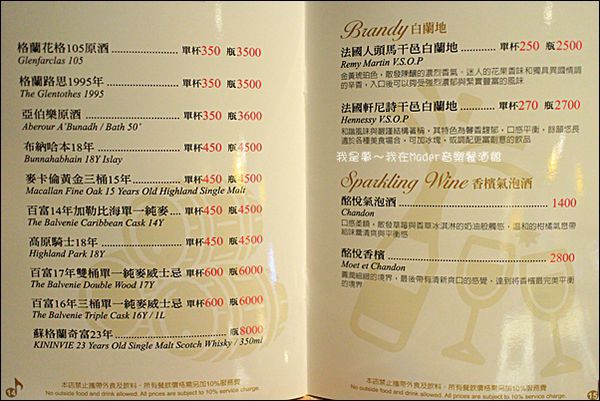 格蘭花格105原酒 ........ 單杯350 瓶3500
Glenfarclas 105
格蘭路思1995年 ........ 單杯350 瓶3500
The Glentothes 1995
亞伯樂原酒 ........ 單杯350 瓶3600
Aberour A'Bunadh / Bath 50'
布納哈本18年 ........ 單杯450 瓶4500
Bunnahabhain 18Y Islay
麥卡倫黃金三桶15年 ........ 單杯450 瓶4500
Macallan Fine Oak 15 Years Old Highland Single Malt
百富14年加勒比海單一純麥.... 單杯450 瓶4500
The Balvenie Caribbean Cask 14Y
高原騎士18年 ........ 單杯450 瓶4500
Highland Park 18Y
百富17年雙桶單一純麥威士忌 單杯600 瓶6000
The Balvenie Double Wood 17Y
百富16年三桶單一純麥威士忌 單杯600 瓶6000
The Balvenie Triple Cask 16Y / 1L
蘇格蘭奇富23年 ........ 瓶8000
KININVIE 23 Years Old Single Malt Scotch Whisky / 350ml
本店禁止攜帶外食及飲料。所有餐飲價格需另加10%服務費
No outside food and drink allowed. All prices are subject to 10% service charge.
14
Brandy 白蘭地
法國人頭馬干邑白蘭地 ........ 單杯250 瓶2500
Remy Martin V.S.O.P
金黃琥珀色，散發陳釀的濃烈香氣。迷人的花果香味和獨具異國情調
的辛香，入口後可以享受強烈濃郁與紮實豐富的風味
法國軒尼詩干邑白蘭地 ........ 單杯270 瓶2700
Hennessy V.S.O.P
和諧風味與嚴謹結構著稱，其特色為馨香馥郁，口感平衡，餘韻悠長
適於各種美食場合，可加冰塊，或調配更富創意的飲品
我是夢～我在Moder音樂餐酒館
Sparkling Wine 香檳氣泡酒
酩悅氣泡酒 ........ 1400
Chandon
口感柔順，散發草莓與香草冰淇淋的奶油般觸感，溫和的柑橘氣息帶
給味蕾清爽與平衡感
酩悅香檳 ........ 2800
Moet et Chandon
豐潤細緻的境界，最後帶有清新爽口的感覺，達到將香檳最完美平衡
的境界
本店禁止攜帶外食及飲料。所有餐飲價格需另加10%服務費
No outside food and drink allowed. All prices are subject to 10% service charge.
15